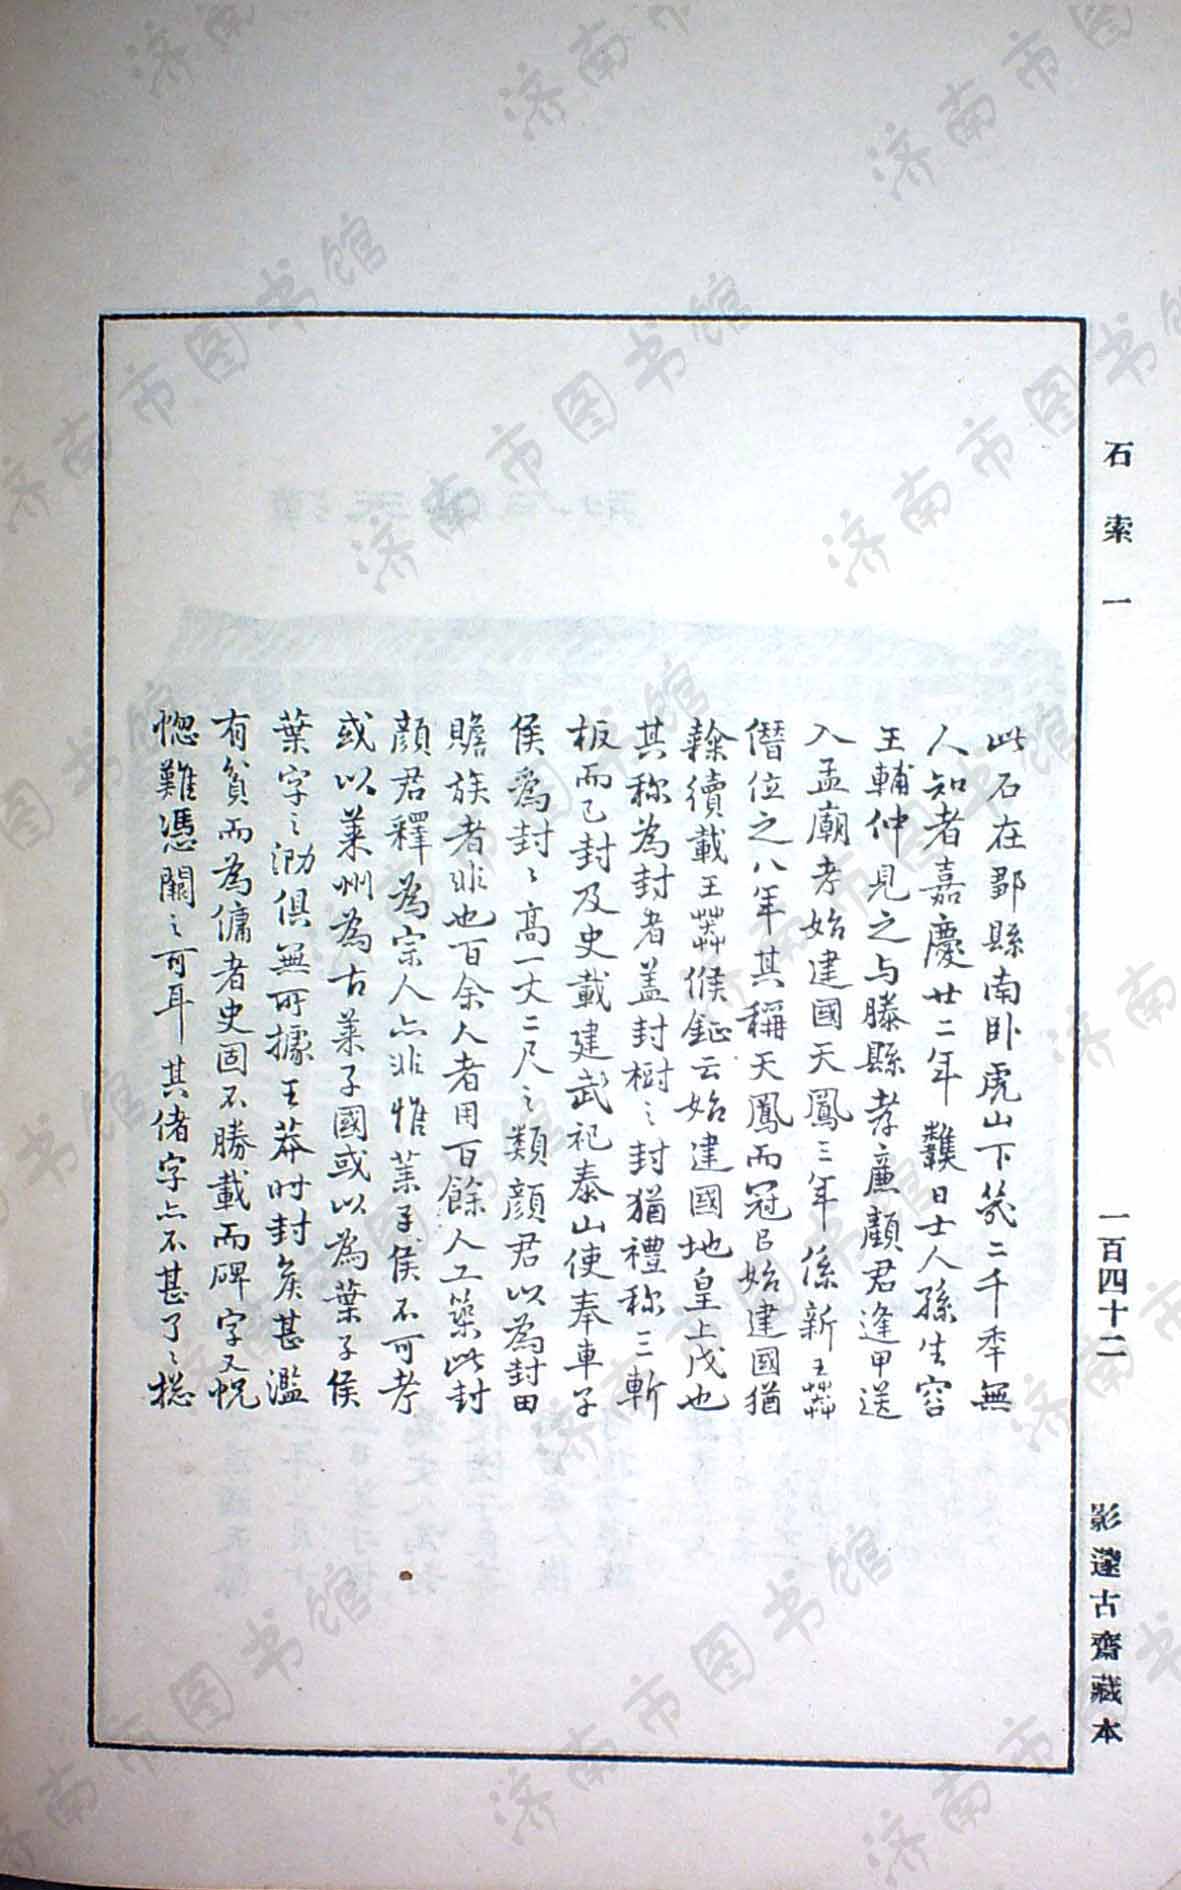 石索一
一百四十二
影邃古齋藏本
此石在鄒縣南卧虎山下笂二千季無
人知者嘉慶廿二年 日士人孫生容
王輔仲見之与滕縣孝廉顏君逢甲送
入孟廟考始建國天鳳三年係新王莽
僭位之八年其稱天鳳而冠㠯始建國猶
餘續載王莽候鉦云始建國地皇上戊也
其称為封者盖封樹之封猶禮称三斬
板而已封及史載建武祀泰山使奉車子
侯爲封封高一丈二尺之類顏君以為封田
贍族者非也百余人者用百餘人工築此封
顏君釋為宗人亦非惟萊子侯不可考
或以萊州為古萊子國或以為葉子侯
葉字之泐俱無所據王莽时封矦甚濫
有貧而為傭者史固不勝載而碑字又怳
惚難憑闕之可耳其偖字亦不甚了了揔
济南市图书馆